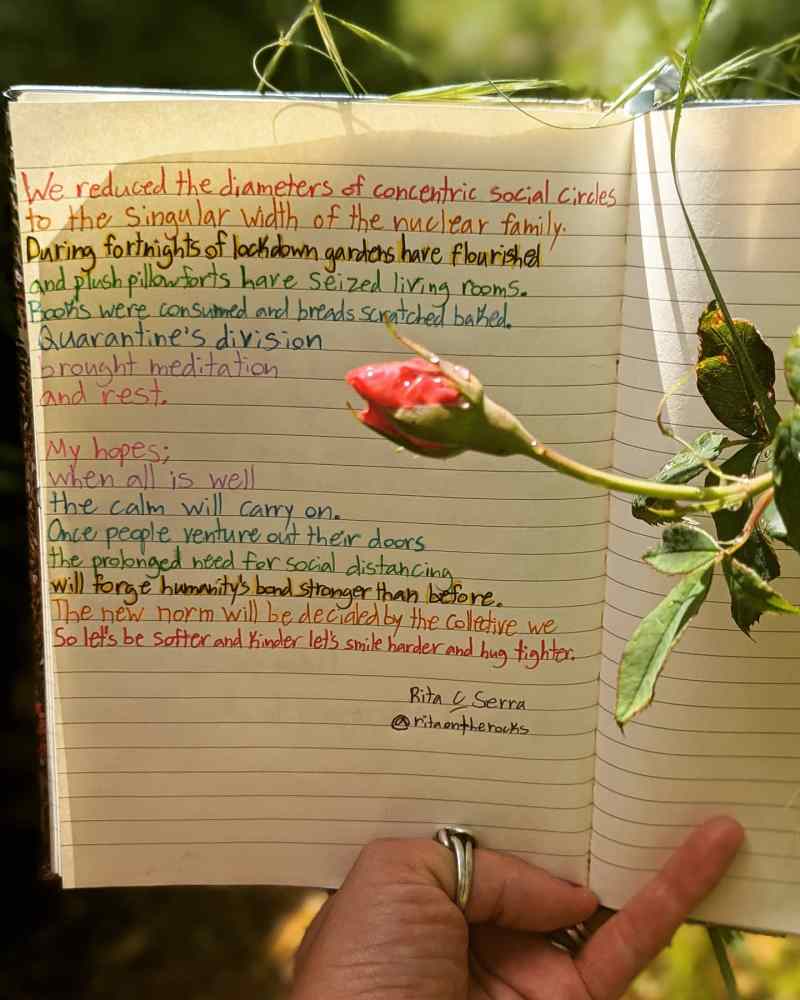 We reduced the diameters of concentric social circles
to the singular width of the nuclear family.
During fortnights of lockdown gardens have flourished
and plush pillowforts have seized living rooms.
Books were consumed and breads scratched baked.
Quarantine's division
brought meditation
and rest.
My hopes;
when all is well
the calm will carry on.
Once people venture out their doors
the prolonged need for social distancing
will forge humanity's bond stronger than before.
The new norm will be decided by the collective we
So let's be softer and kinder let's smile harder and hug tighter.
Rita C Serra
@ritaontherocks